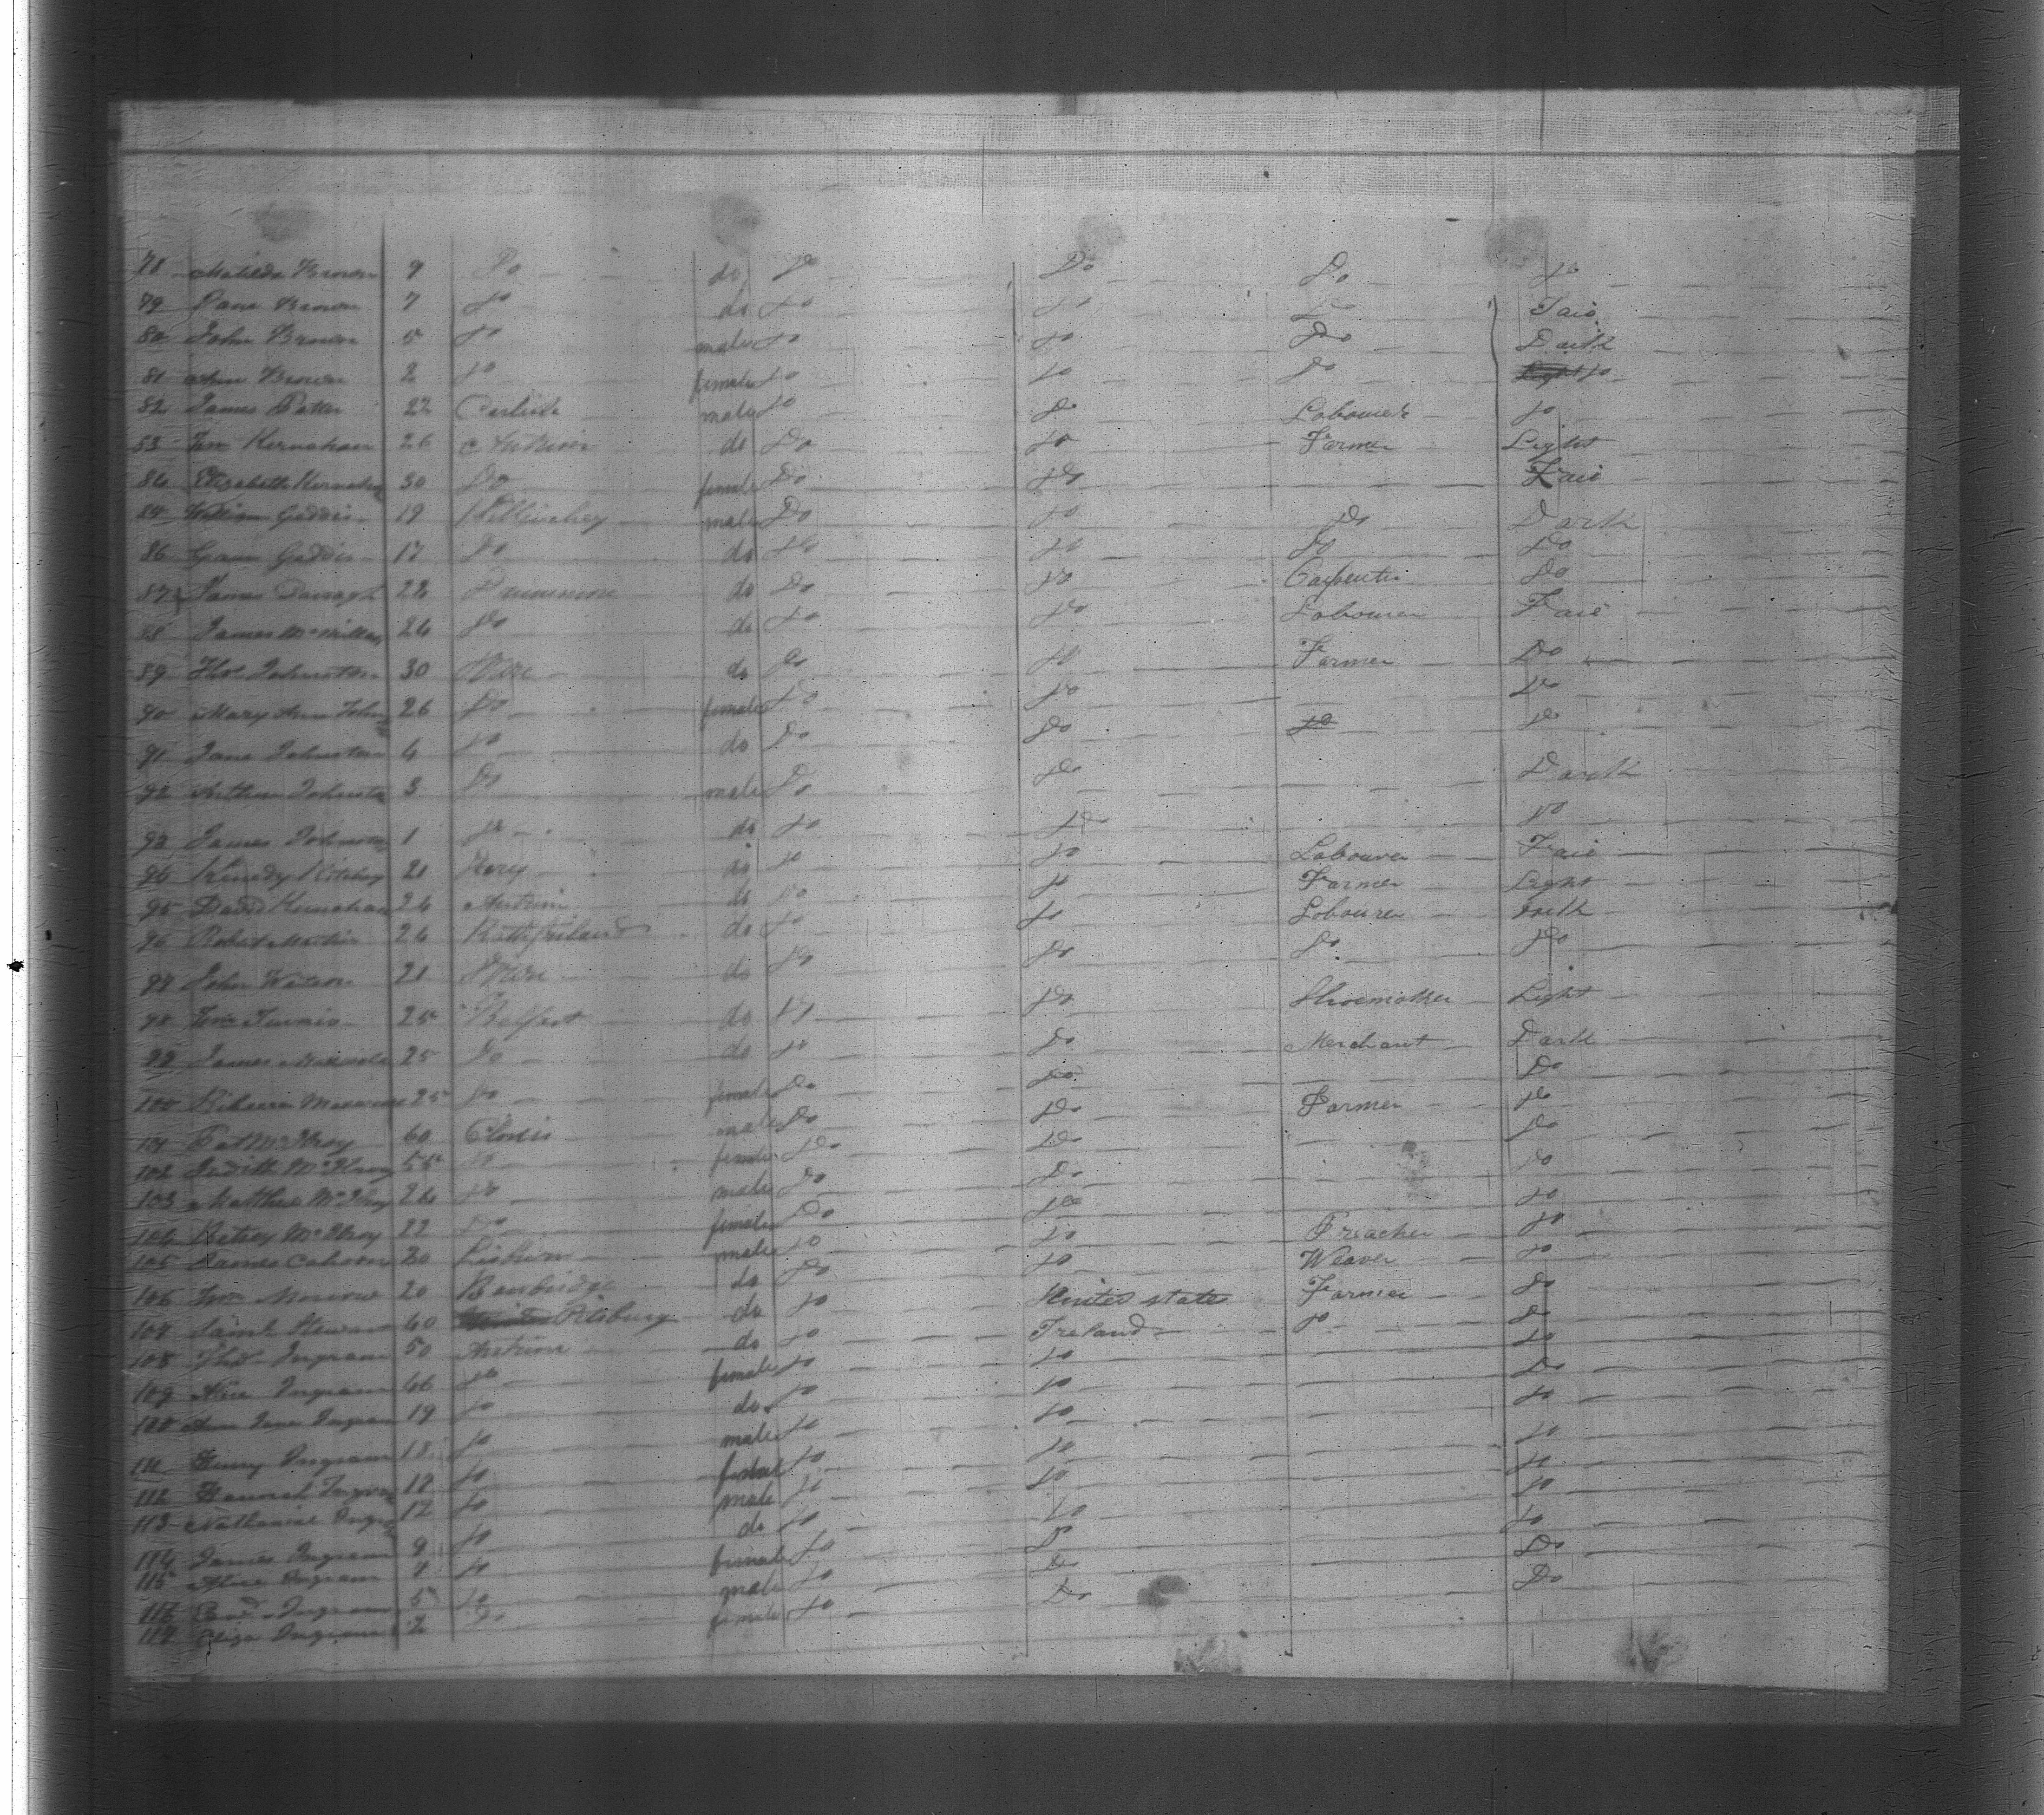 78 Matilda Brown 9 Do do Do Do Do Do
79 Jane Brown 7 Do do Do Do Do Fair
80 John Brown 5 Do male Do Do Do Dark
81 Ann Brown 2 Do female Do Do Do Do
82 James Patter 22 Carlisle male Do Do Labourer Do
83 Wm Kernahan 26 Antrim do Do Do Farmer Light
84 Elizabeth Kernahan 30 Do female Do Do Fair
85 William Geddis 19 Killinchey male Do Do Do Dark
86 Geddis 17 Do do Do Do Do Do
87 James Darragh 22 do Do Do Carpenter Do
88 James McMillan 24 Do do Do Do Labourer Fair
89 Thos Johnston 30 do Do Do Farmer Do
90 Mary Ann Johns 26 Do female Do Do Do
91 Jane Johnston 4 Do do Do Do Do
92 Arthur Johnston 3 Do male Do Do Dark
93 James Johnston 1 Do do Do Do Do
94 21 do Do Do Labourer Fair
95 David Kernahan 24 Antrim do Do Do Farmer Light
96 Robert Martin 24 Rathfriland do Do Do Labourer Dark
97 John Watson 21 do Do Do Do Do
98 Wm 25 Belfast do Do Do Shoemaker Light
99 James Maxwell 25 Do do Do Do Merchant Dark
100 Maxwell 25 Do female Do Do Do
101 Pat McIlroy 60 male Do Do Farmer Do
102 Judith McIlroy 55 Do female Do Do Do
103 Matthew McIlroy 26 Do male Do Do Do
104 Betsey McIlroy 22 Do female Do Do Do
105 James Cahoon 30 Lisburn male Do Do Preacher Do
106 Wm Monroe 20 Banbridge do Do Do Weaver Do
107 Saml Stewart 60 Pitsburg do Do United states Farmer Do
108 Thos Ingram 50 Antrim do Do Ireland Do Do
109 Ingram 46 Do female Do Do Do
Ann Jane Ingram 19 Do do Do Do Do
111 Henry Ingram 18 Do male Do Do Do
112 Hannah Ingram Do female Do Do Do
113 Nathaniel Ingram 12 Do male Do Do Do
114 James Ingram 9 Do do Do Do Do
115 Alice Ingram 7 Do female Do Do Do
116 Ingram 5 Do male Do Do Do
117 Eliza Ingram 2 Do female Do Do Do